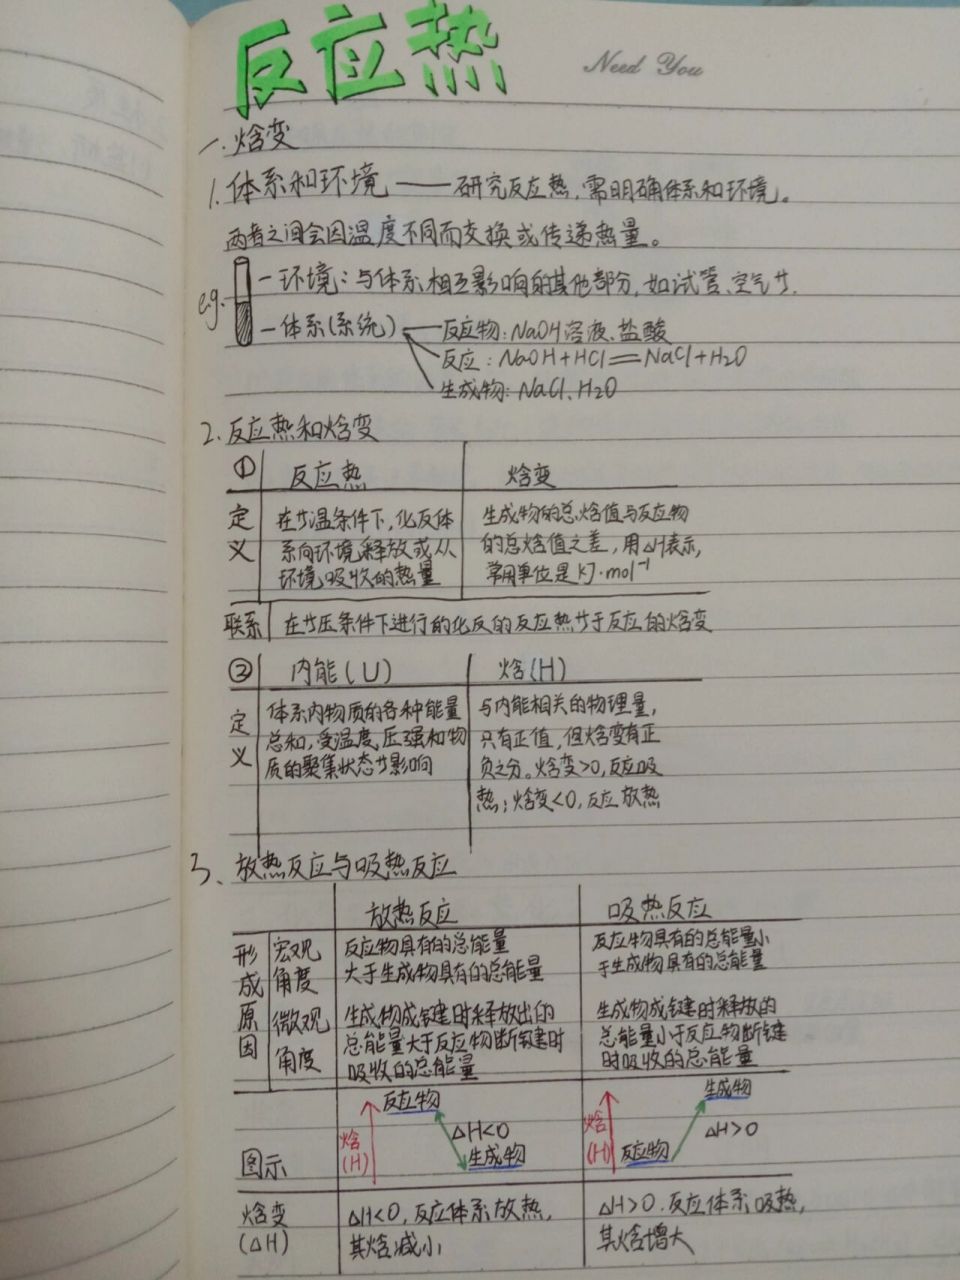 反应热
Need You
一.焓变
1.体系和环境 —— 研究反应热,需明确体系和环境。
两者之间会因温度不同而交换或传递热量。
e.g.
—环境:与体系相互影响的其他部分,如试管、空气廾.
—体系(系统)
反应物:NaOH溶液、盐酸
反应:NaOH+HCl═NaCl+H2O
生成物:NaCl、H2O
2.反应热和焓变
① 反应热 焓变
定义
在廾温条件下,化反体
系向环境释放或从
环境吸收的热量
生成物的总焓值与反应物
的总焓值之差,用△H表示,
常用单位是kJ·mol⁻¹
联系 在廾压条件下进行的化反的反应热廾于反应的焓变
② 内能(U) 焓(H)
定义
体系内物质的各种能量
总和,受温度、压强和物
质的聚集状态廾影响
与内能相关的物理量,
只有正值,但焓变有正
负之分。焓变>0,反应吸
热;焓变<0,反应放热
3、放热反应与吸热反应
放热反应 吸热反应
形成原因
宏观角度
反应物具有的总能量
大于生成物具有的总能量
反应物具有的总能量小
于生成物具有的总能量
微观角度
生成物成键时释放出的
总能量大于反应物断键时
吸收的总能量
生成物成键时释放的
总能量小于反应物断键
时吸收的总能量
图示
焓(H)
反应物
△H<0
生成物
焓(H)
反应物
生成物
△H>0
焓变
(△H)
△H<0,反应体系放热,
其焓减小
△H>0,反应体系吸热,
其焓增大